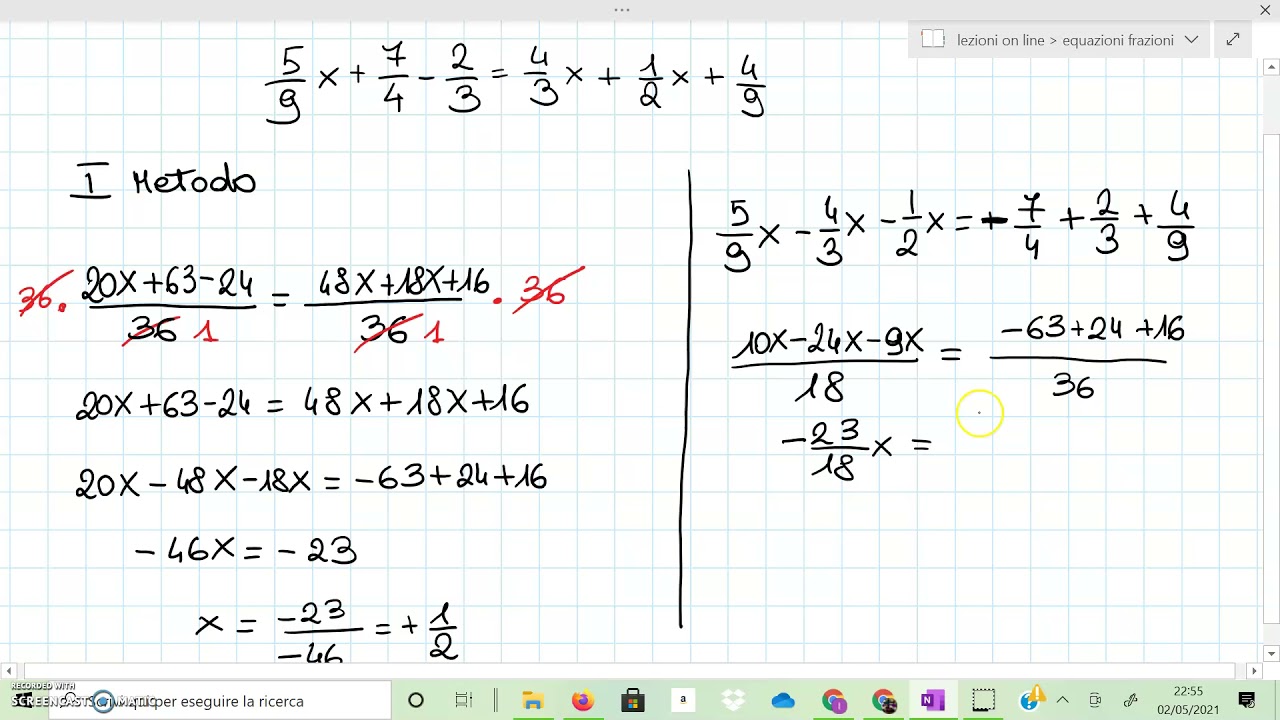 lezioni on line > equazioni frazioni
5/9 x + 7/4 - 2/3 = 4/3 x + 1/2 x + 4/9
I Metodo
36 · (20x+63-24)/36 1 = (48x+18x+16)/36 1 · 36
20x+63-24 = 48x+18x+16
20x-48x-18x = -63+24+16
-46x = -23
x = -23/-46 = + 1/2
5/9 x - 4/3 x - 1/2 x = - 7/4 + 2/3 + 4/9
(10x-24x-9x)/18 = (-63+24+16)/36
-23/18 x =
RECORDED WITH
SCREENCAST MATIC
per eseguire la ricerca
a
22:55
02/05/2021